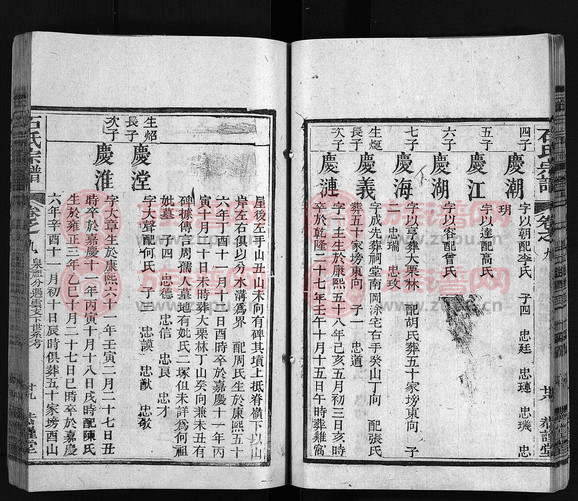 石氏宗譜
卷之九
四子
慶潮
字以朝配李氏 子四 忠廷 忠璉 忠璣 忠玥
五子
慶江
字以達配高氏
六子
慶湖
字以容配曾氏
七子
慶海
字以亨葬大栗林 配胡氏葬五十家塝東向 子二 忠瑞 忠玫
生烶長子
慶義
字成先葬祠堂南岡涂宅右手癸山丁向 配張氏葬五十家塝東向 子一 忠道
次子
慶漣
字 生於康熙五十八年己亥五月初三日亥時卒於乾隆二十七年壬午十月十五日午時葬雞窩
崖後左手山丑山未向有碑其墳上抵脊嶺下以山岸左右俱以分水溝為界 配周氏生於康熙五十六年丁酉十一月十二日酉時卒於嘉慶十一年丙寅十月二十日未時葬大栗林丁山癸向兼未丑有碑據傳言周孺人墓地有妣氏二塚但未詳為何祖妣墓 子四 忠德 忠信 忠良 忠才
生炤長子
慶堂
字大聲配何氏 子三 忠謨 忠猷 忠敬
次子
慶淮
字大章生於康熙六十一年壬寅二月二十七日丑時卒於嘉慶十一年丙寅十月十八日戌時配陳氏生於雍正三年乙巳十二月二十七日巳時卒於嘉慶六年辛酉十一月初一日辰時俱葬五十家塝酉山
石氏宗譜
卷之九